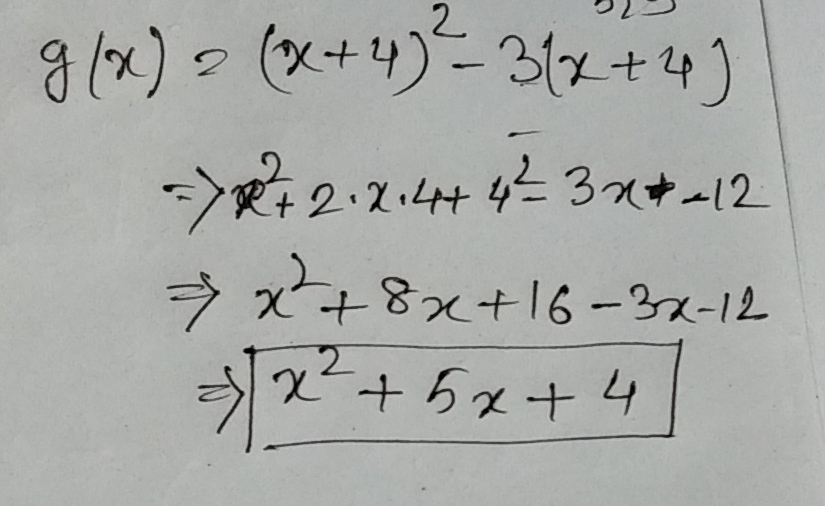 g(x) = (x+4)² - 3(x+4)
⇒ x² + 2·x·4 + 4² - 3x - 12
⇒ x² + 8x + 16 - 3x - 12
⇒ x² + 5x + 4